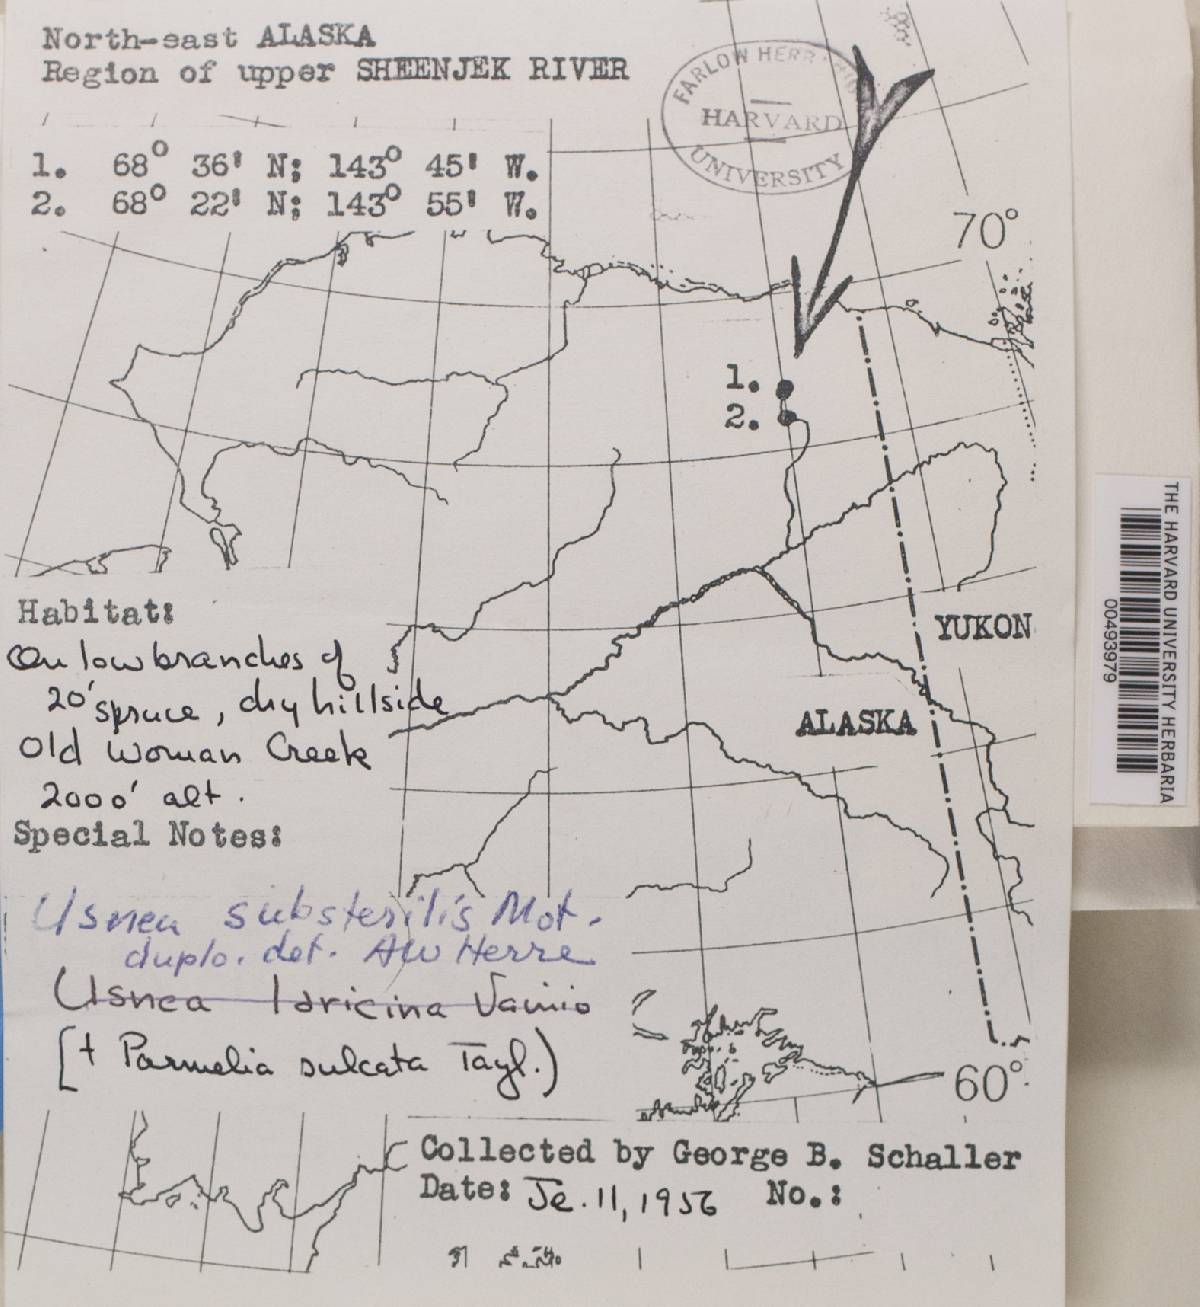 North-east ALASKA
Region of upper SHEENJEK RIVER
FARLOW HERBARIUM
HARVARD
UNIVERSITY
1. 68° 36' N; 143° 45' W.
2. 68° 22' N; 143° 55' W.
70°
1.
2.
THE HARVARD UNIVERSITY HERBARIA
00493979
YUKON
Habitat:
On low branches of
20' spruce, dry hillside
Old Woman Creek
2000' alt.
ALASKA
Special Notes:
Usnea substerilis Mot.
duplo. det. AW Herre
Usnea laricina Vainio
[+ Parmelia sulcata Tayl.)
60°
Collected by George B. Schaller
Date: Je. 11, 1956 No.: